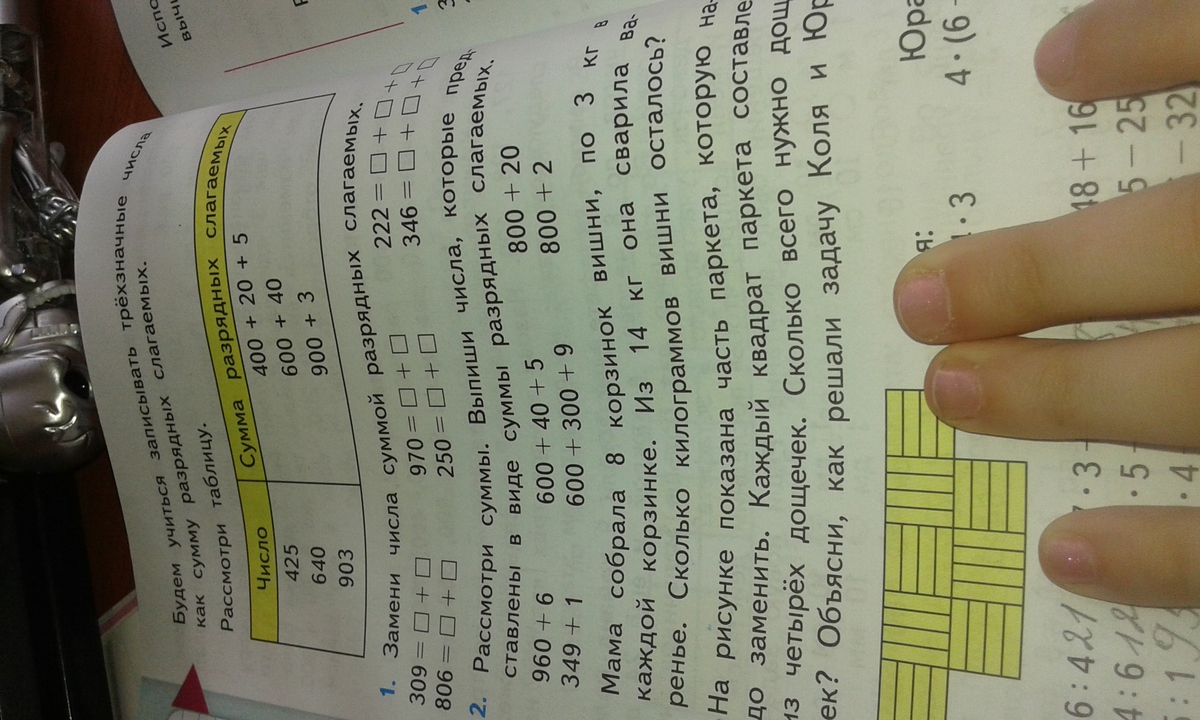 Испо
вычи
Будем учиться записывать трёхзначные числа
как сумму разрядных слагаемых.
Рассмотри таблицу.
Число Сумма разрядных слагаемых
425 400 + 20 + 5
640 600 + 40
903 900 + 3
1. Замени числа суммой разрядных слагаемых.
309 = □ + □ 970 = □ + □ 222 = □ + □ + □
806 = □ + □ 250 = □ + □ 346 = □ + □ + □
2. Рассмотри суммы. Выпиши числа, которые пред-
ставлены в виде суммы разрядных слагаемых.
960 + 6 600 + 40 + 5 800 + 20
349 + 1 600 + 300 + 9 800 + 2
Мама собрала 8 корзинок вишни, по 3 кг в
каждой корзинке. Из 14 кг она сварила ва-
ренье. Сколько килограммов вишни осталось?
На рисунке показана часть паркета, которую на-
до заменить. Каждый квадрат паркета составле
из четырёх дощечек. Сколько всего нужно дощ
ек? Объясни, как решали задачу Коля и Юр
я: Юра
· 3 4 · (6
6 : 421 · 3 48 + 16
4 : 612 · 5 5 − 25
: 19 · 4 − 32